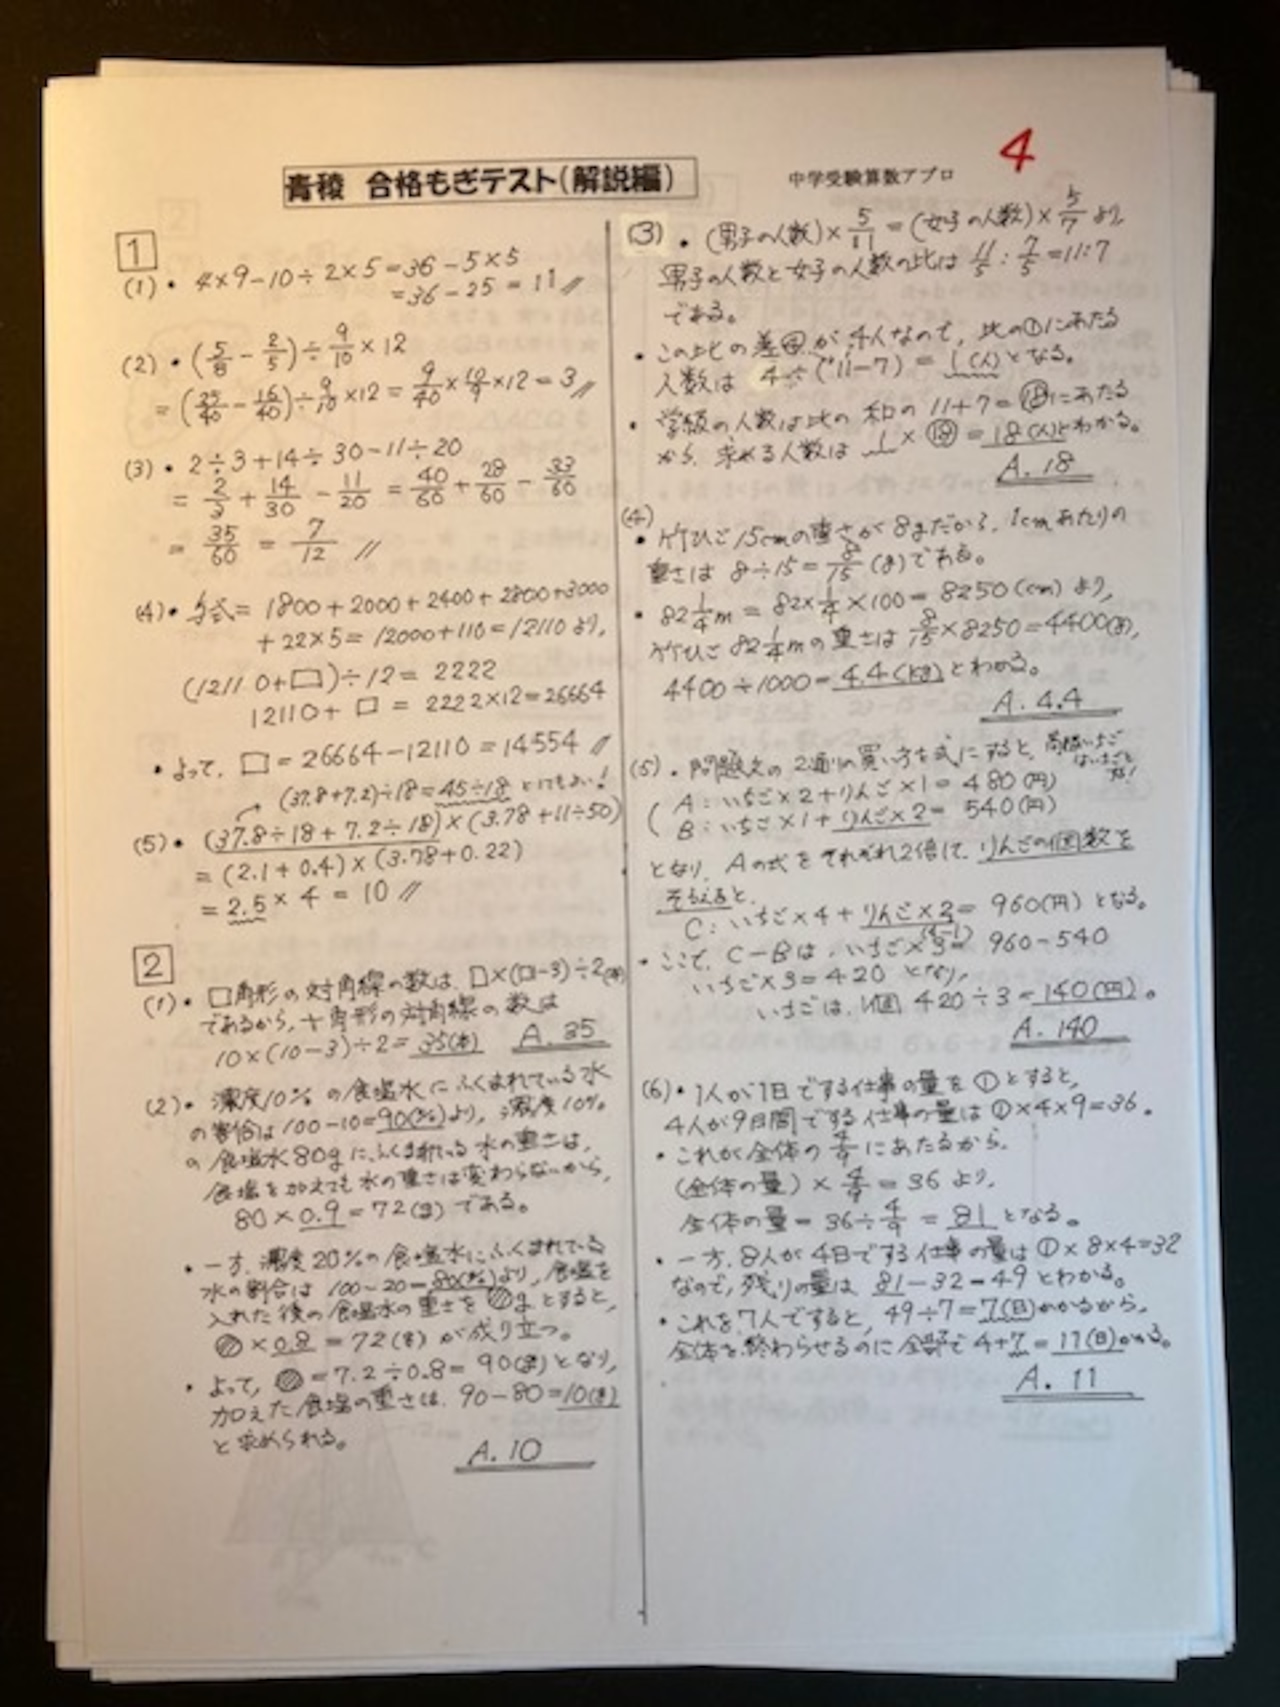 4
青稜 合格もぎテスト(解説編)
中学受験算数アプロ
1
(1)・ 4×9-10÷2×5=36-5×5
=36-25=11〃
(2)・(5/8-2/5)÷9/10×12
=(25/40-16/40)÷9/10×12=9/40×10/9×12=3〃
(3)・2÷3+14÷30-11÷20
=2/3+14/30-11/20=40/60+28/60-33/60
=35/60=7/12〃
(4)・与式=1800+2000+2400+2800+3000
+22×5=12000+110=12110より,
(12110+□)÷12=2222
12110+□=2222×12=26664
・よって,□=26664-12110=14554〃
(37.8+7.2)÷18=45÷18としてもよい!
(5)・(37.8÷18+7.2÷18)×(3.78+11÷50)
=(2.1+0.4)×(3.78+0.22)
=2.5×4=10〃
2
(1)・□角形の対角線の数は,□×(□-3)÷2(本)
であるから,十角形の対角線の数は
10×(10-3)÷2=35(本) A.35
(2)・濃度10%の食塩水にふくまれている水
の割合は100-10=90(%)より,濃度10%
の食塩水80gにふくまれている水の重さは,
食塩を加えても水の重さは変わらないから,
80×0.9=72(g)である。
・一方,濃度20%の食塩水にふくまれている
水の割合は100-20=80(%)より,食塩を
入れた後の食塩水の重さを◯gとすると,
◯×0.8=72(g)が成り立つ。
・よって,◯=7.2÷0.8=90(g)となり,
加えた食塩の重さは,90-80=10(g)
と求められる。
A.10
(3)・(男子の人数)×5/11=(女子の人数)×5/7より,
男子の人数と女子の人数の比は11/5:7/5=11:7
である。
・この比の差④が4人なので,比の①にあたる
人数は4÷(11-7)=1(人)となる。
・学級の人数は比の和の11+7=⑱にあたる
から,求める人数は1×⑱=18(人)とわかる。
A.18
(4)
・竹ひご15cmの重さが8gだから,1cmあたりの
重さは8÷15=8/15(g)である。
・82 1/4m=82 1/4×100=8250(cm)より,
竹ひご82 1/4mの重さは8/15×8250=4400(g),
4400÷1000=4.4(kg)とわかる。
A.4.4
(5)・問題文の2通りの買い方を式にすると,
A:いちご×2+りんご×1=480(円)
B:いちご×1+りんご×2=540(円)
となり,Aの式をそれぞれ2倍して,りんごの個数を
そろえると,
C:いちご×4+りんご×2=960(円)となる。
(4-1)
・ここで,C-Bは,いちご×3=960-540
いちご×3=420となり,
いちごは,1個420÷3=140(円)。
A.140
(6)・1人が1日でする仕事の量を①とすると,
4人が9日間でする仕事の量は①×4×9=36。
・これが全体の4/9にあたるから,
(全体の量)×4/9=36より,
全体の量=36÷4/9=81となる。
・一方,8人が4日でする仕事の量は①×8×4=32
なので,残りの量は81-32=49とわかる。
・これを7人ですると,49÷7=7(日)かかるから,
全体を終わらせるのに全部で4+7=11(日)かかる。
A.11